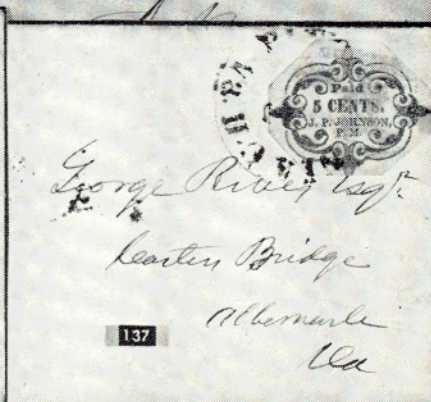 Paid
5 CENTS.
J. P. JOHNSON,
P.M.
George River Esqr.
Carters Bridge
Albemarle
Va
137